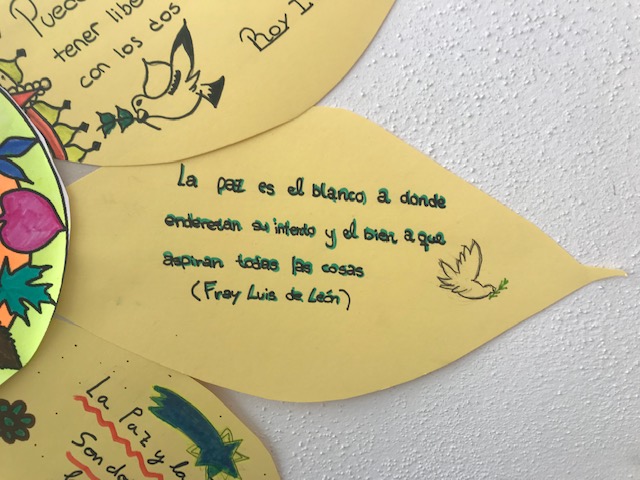 Puede
tener libe
con los dos
Rey I
La paz es el blanco, a donde
enderezan su intento y el bien a que
aspiran todas las cosas
(Fray Luis de León)
La Paz y la
Son do